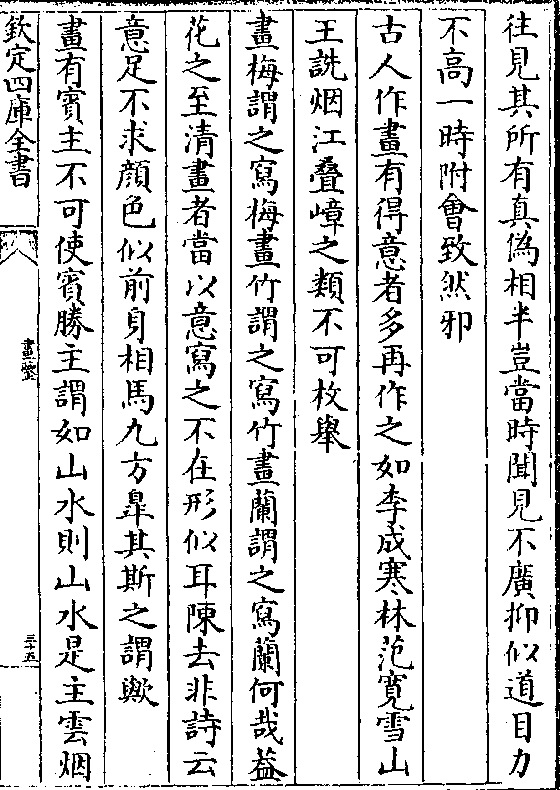 往見其所有真偽相半豈當時聞見不廣抑似道目力
不高一時附會致然邪
古人作畫有得意者多再作之如李成寒林范寛雪山
王詵烟江疊嶂之類不可枚舉
畫梅謂之寫梅畫竹謂之寫竹畫蘭謂之寫蘭何哉葢
花之至清畫者當以意寫之不在形似耳陳去非詩云
意足不求顔色似前身相馬九方臯其斯之謂歟
畫有賓主不可使賓勝主謂如山水則山水是主雲烟
欽定四庫全書
畫鑒
三十五